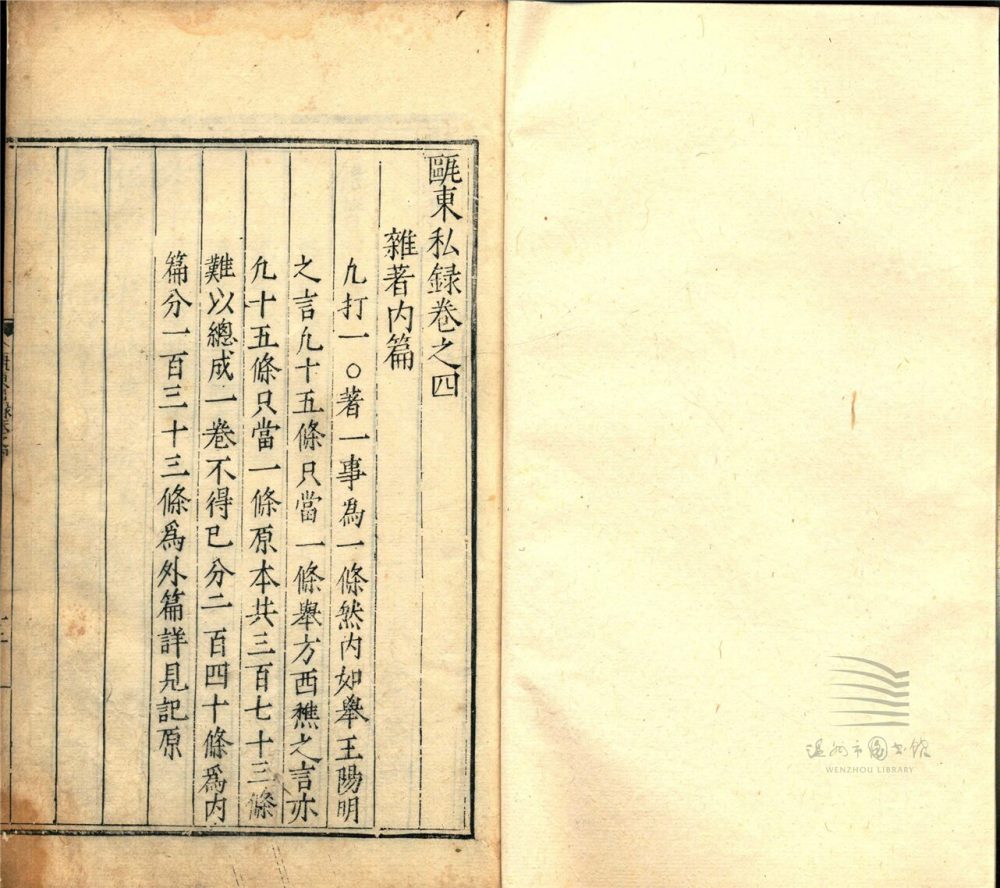 甌東私録卷之四
雜著内篇
凢打一〇著一事為一條然内如舉王陽明
之言凢十五條只當一條舉方西樵之言亦
凢十五條只當一條原本共三百七十三條
難以總成一卷不得已分二百四十條爲内
篇分一百三十三條爲外篇詳見記原
温州市图书馆
WENZHOU LIBRARY